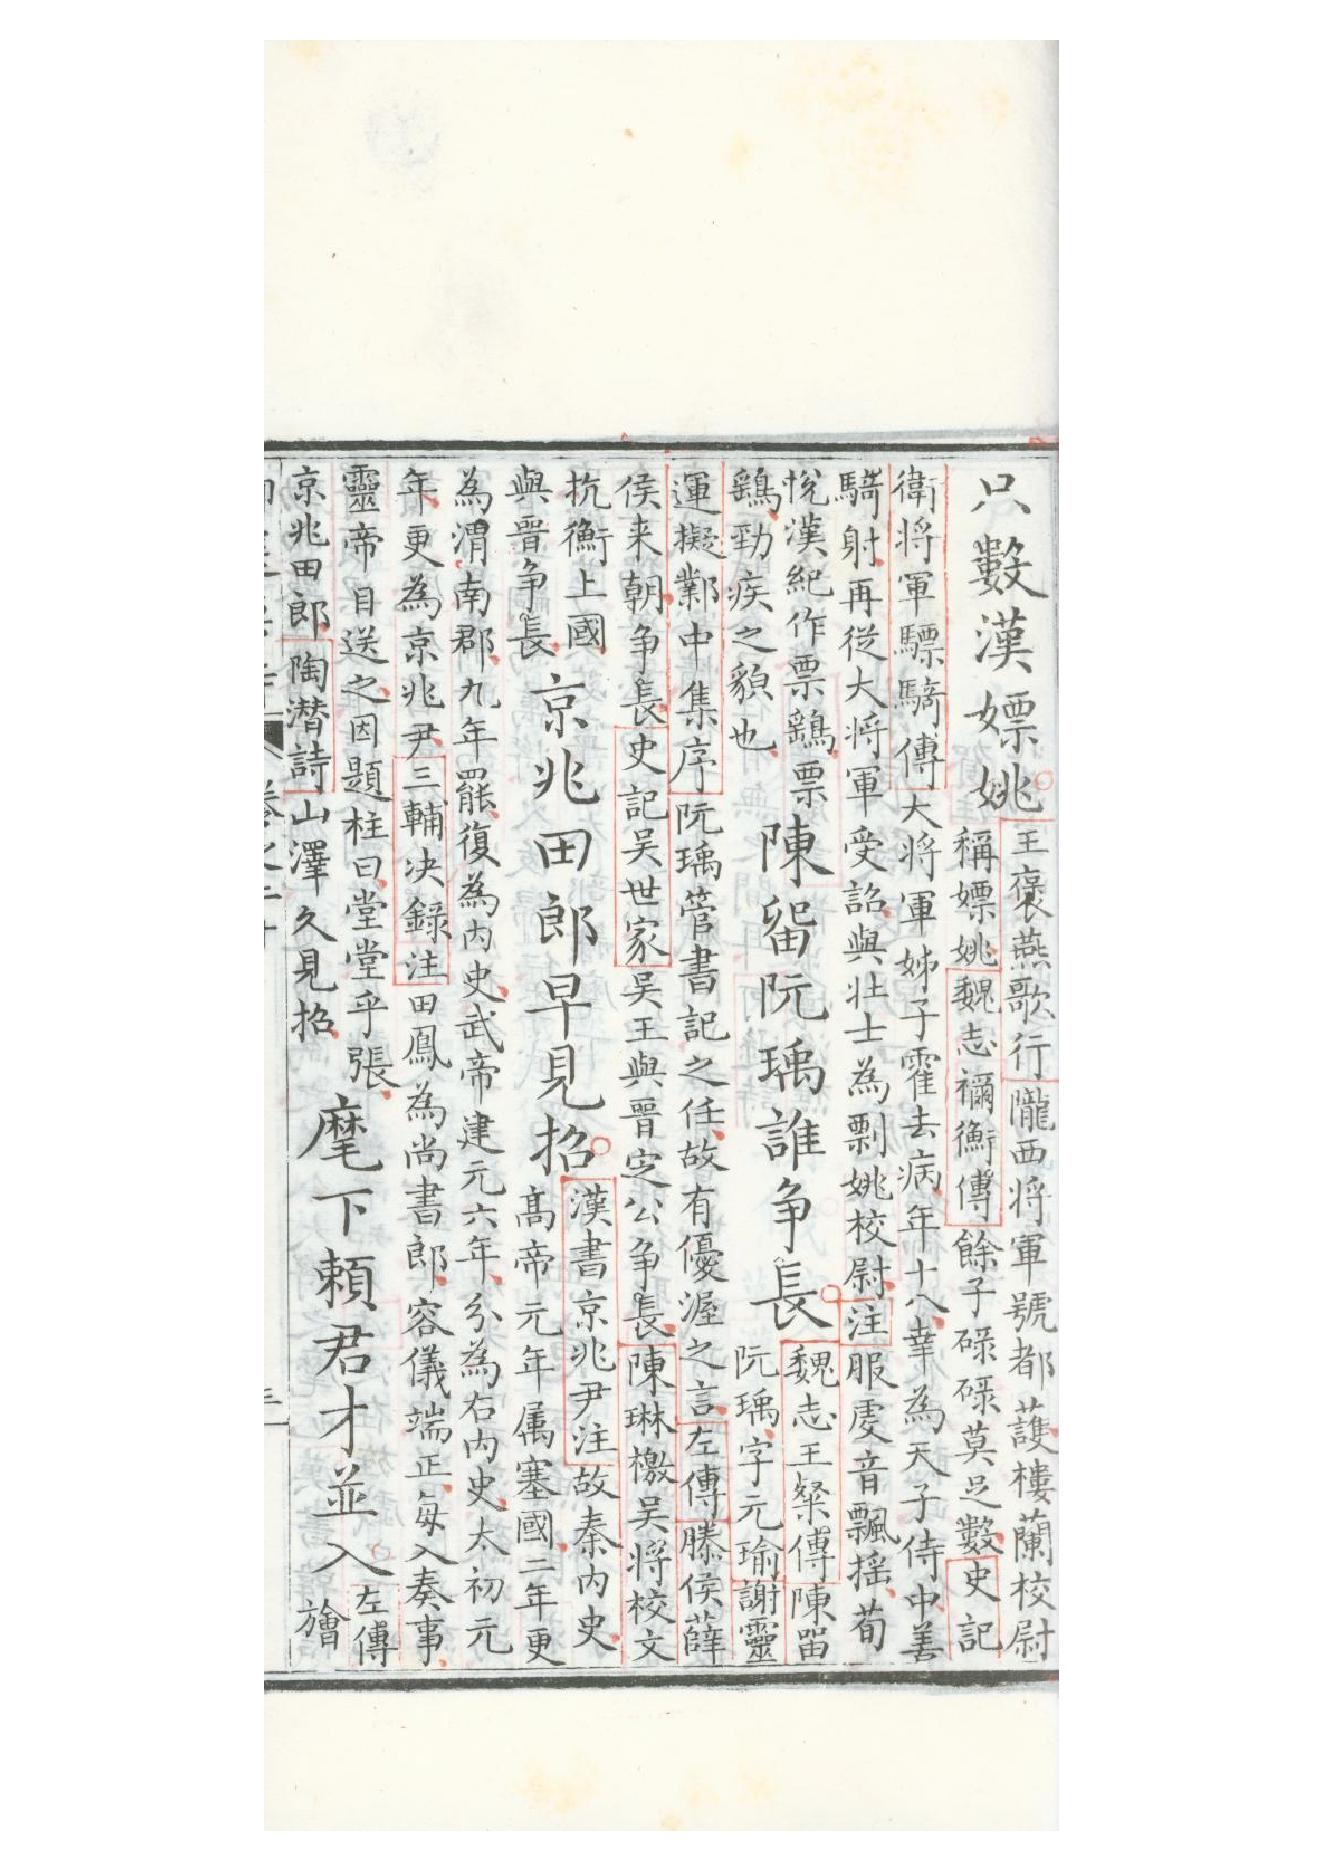 只數漢嫖姚王褒燕歌行隴西將軍號都護樓蘭校尉
稱嫖姚魏志禰衡傳餘子碌碌莫足數史記
衛将軍驃騎傳大将軍姊子霍去病年十八幸為天子侍中善
騎射再從大将軍受詔與壯士為剽姚校尉注服虔音飄摇荀
悅漢紀作票鷂票
鷂勁疾之貌也
陳留阮瑀誰争長魏志王粲傳陳留
阮瑀字元瑜謝靈
運擬鄴中集序阮瑀管書記之任故有優渥之言左傳滕侯薛
侯来朝争長史記吴世家吴王與晋定公争長陳琳檄吴将校文
抗衡上國
與晋争長
京兆田郎早見招漢書京兆尹注故秦内史
髙帝元年属塞國二年更
為渭南郡九年罷復為内史武帝建元六年分為右内史太初元
年更為京兆尹三輔决録注田鳳為尚書郎容儀端正每入奏事
靈帝目送之因題柱曰堂堂乎張
京兆田郎陶潜詩山澤久見招
麾下頼君才並入左傳
旝